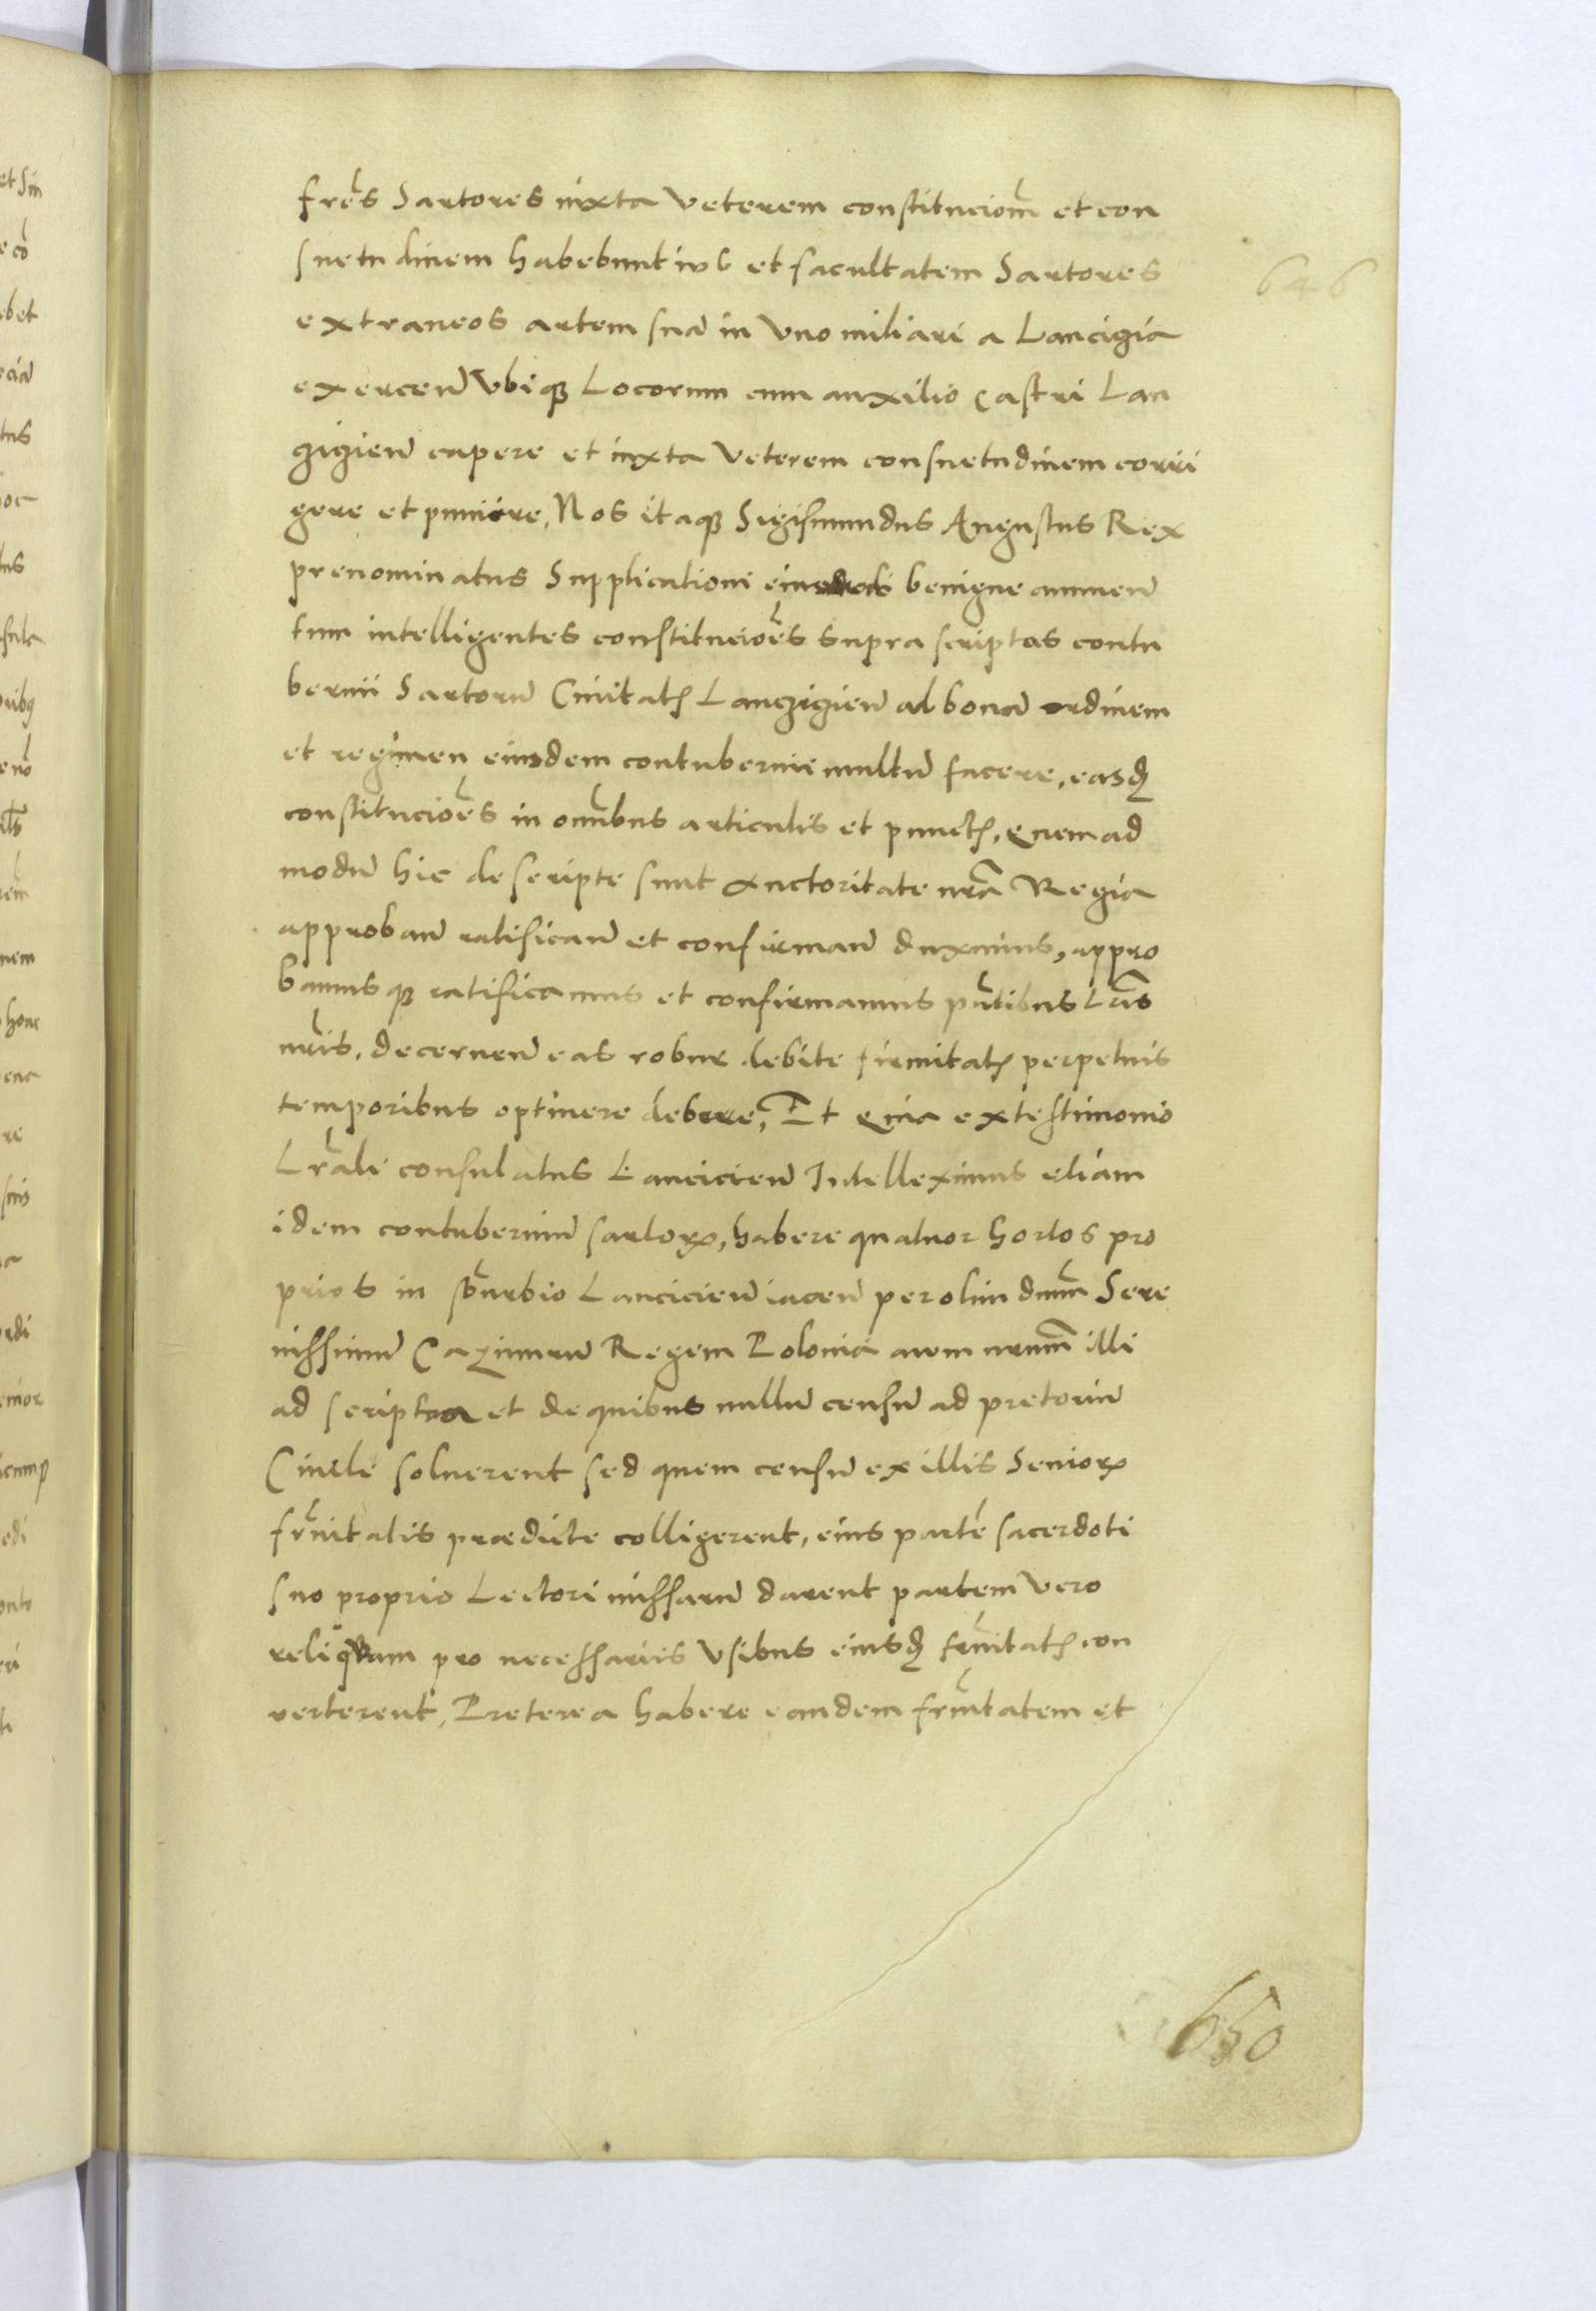 fres Sartores iuxta veterem constitucionem et con
suetudinem habebunt ius et facultatem Sartores
646
extraneos artem sua in vno miliari a Lancigia
exercen vbiq Locorum cum auxilio Castri Lan
zigien capere et iuxta veterem consuetudinem corri
gere et punire, Nos itaq Sigismundus Augustus Rex
prenominatus Supplicationi benigne annuen
tum intelligentes constitucioes supra scriptas contu
bernii Sartoru Ciuitatis Lanczigien ad bonu ordinem
et regimen eiusdem contubernii multu facere, easq
constitucioes in omibus articulis et punctis, quemad
modu hic descripte sunt Auctoritate nra Regia
approban ratifican et confirman duximus, appro
bamusq ratificamus et confirmamus pntibus Lris
nris, decernen eas robur debite firmitatis perpetuis
temporibus optinere debere, Et quia ex testimonio
Lrali consulatus Lancicien Intelleximus etiam
idem contuberniu sartorum, habere quatuor hortos pro
prios in sburbio Lancicien iacen per olim dnum Sere
nissimu Cazimiru Regem Polonia auum nrum illi
ad scriptos et de quibus nullu censu ad pretoriu
Ciuile soluerent sed quem censu ex illis Seniores
frnitatis praedicte colligerent, eius parte sacerdoti
suo proprio Lectori missaru darent partem vero
reliquam pro necessariis vsibus eiusdem frnitatis con
verterent, Preterea habere eandem frnitatem et
650